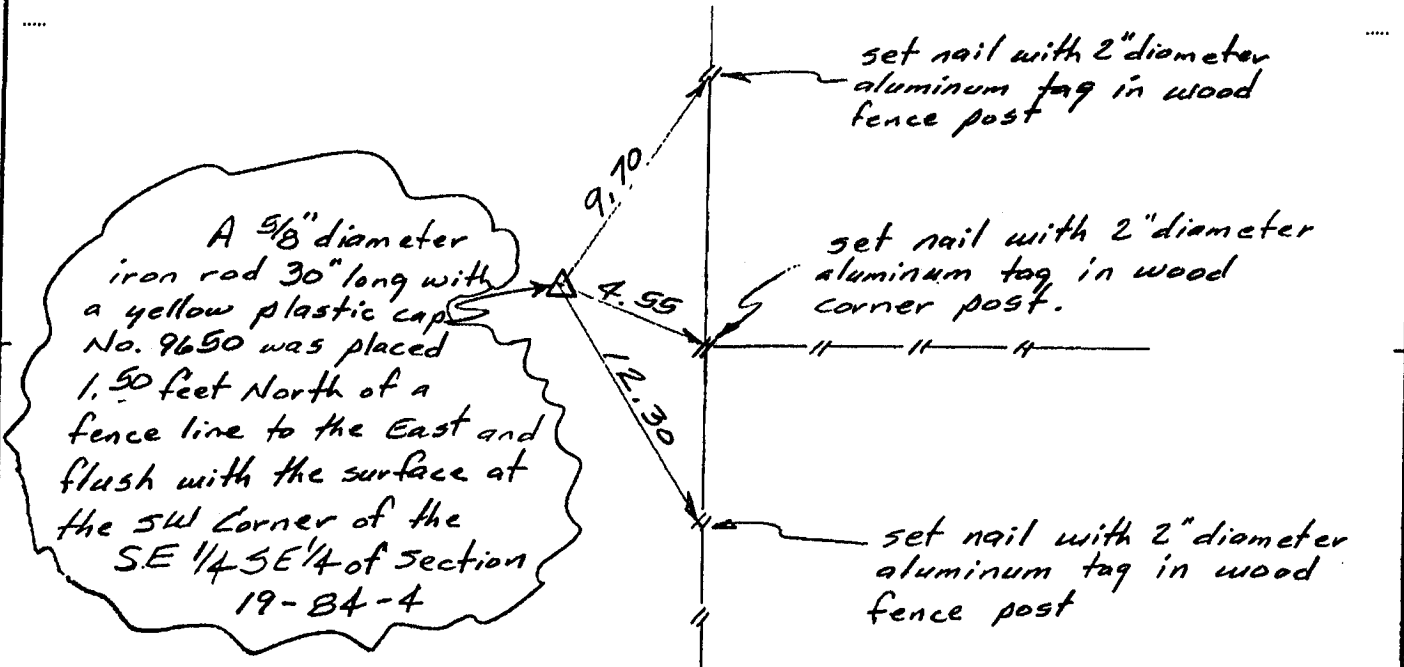 set nail with 2" diameter
aluminum tag in wood
fence post
9.70
A 5/8" diameter
iron rod 30" long with
a yellow plastic cap
No. 9650 was placed
1.50 feet North of a
fence line to the East and
flush with the surface at
the SW Corner of the
SE 1/4 SE 1/4 of section
19-84-4
4.55
set nail with 2" diameter
aluminum tag in wood
corner post.
12.30
set nail with 2" diameter
aluminum tag in wood
fence post